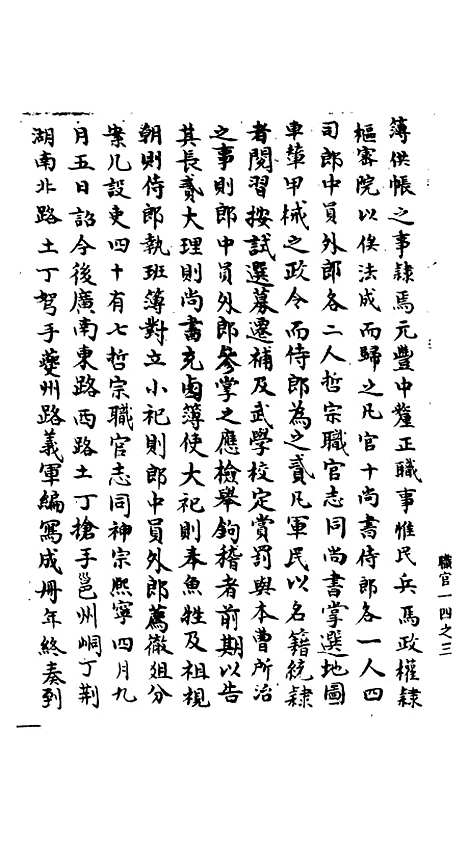 簿供帳之事隸焉元豐中釐正職事惟民兵馬政權隸
樞密院以俟法成而歸之凡官十尚書侍郎各一人四
司郎中員外郎各二人哲宗職官志同尚書掌選地圖
車輦甲械之政令而侍郎為之貳凡軍民以名籍統隸
者閱習按試選募遷補及武學校定賞罰與本曹所治
之事則郎中員外郎參掌之應檢舉鉤稽者前期以告
其長貳大理則尚書充鹵簿使大祀則奉魚牲及俎視
朝則侍郎執班簿對立小祀則郎中員外郎薦徹俎分
案凡設吏四十有七哲宗職官志同神宗熙寧四月九
月五日詔今後廣南東路西路土丁槍手邕州峒丁荆
湖南北路土丁弩手夔州路義軍編寫成冊年終奏到
職官一四之三